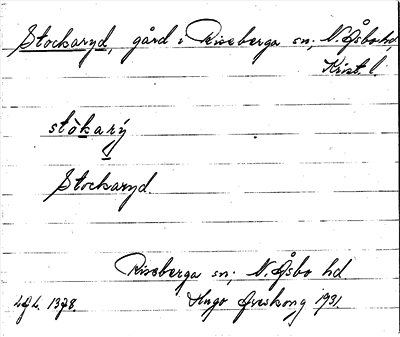 Stockaryd, gård i Riseberga sn; N. Åsbo hd,
Krist l.
stòkarý
Stockaryd.
Riseberga sn; N. Åsbo hd
Hugo Areskoug 1931.